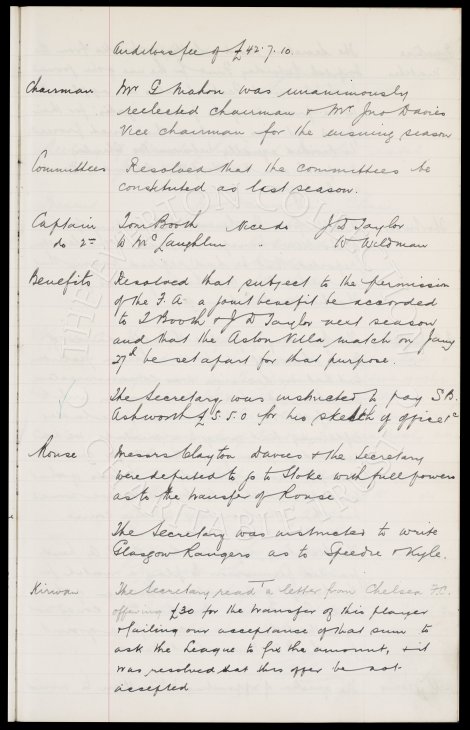 Auditors fee of £42.7.10
Chairman Mr G Mahon was unanimously
reelected chairman & Mr Jno Davies
Vice chairman for the ensuing season
Committees Resolved that the committees be
constituted as last season.
Captain Tom Booth Vice do J D Taylor
do 2nd W McLaughlin " W Wildman
Benefits Resolved that subject to the permission
of the F.A. a joint benefit be accorded
to T Booth & J D Taylor next season
and that the Aston Villa match on Jany
27th be set apart for that purpose.
The Secretary was instructed to pay S.B.
Ashworth £5.5.0 for his sketch of office &c
Rouse Messrs Clayton Davies & the Secretary
were deputed to go to Stoke with full powers
as to the transfer of Rouse
The Secretary was instructed to write
Glasgow Rangers as to Speedie & Kyle.
Kirwan The Secretary read a letter from Chelsea F.C.
offering £30 for the transfer of this player
& failing our acceptance of that sum to
ask the League to fix the amount, & it
was resolved that this offer be not
accepted
© THE EVERTON COLLECTION
CHARITABLE TRUST